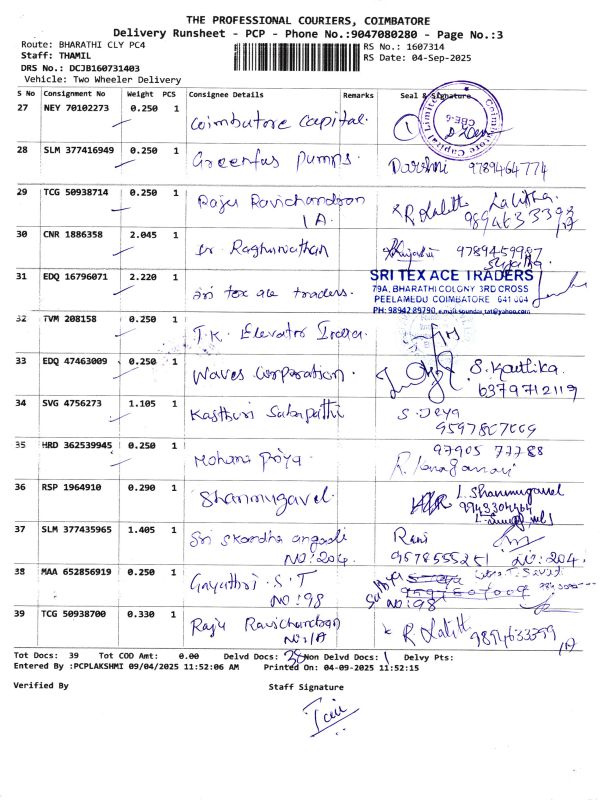 THE PROFESSIONAL COURIERS, COIMBATORE
Delivery Runsheet - PCP - Phone No.:9047080280 - Page No.:3
Route: BHARATHI CLY PC4 RS No.: 1607314
Staff: THAMIL RS Date: 04-Sep-2025
DRS No.: DCJB160731403
Vehicle: Two Wheeler Delivery
S No Consignment No Weight PCS Consignee Details Remarks Seal & Signature
27 NEY 70102273 0.250 1 Coimbatore Capital. 1
Coimbatore Capital Limited
CBE-6
28 SLM 377416949 0.250 1 Greenfas Pumps. Darshni 9789464774
29 TCG 50938714 0.250 1 Raju Ravichandran Lalitha.
1A. R Lalitt 9894633399 1A
30 CNR 1886358 2.045 1 Raghunathan 9789459997
Sujatha
31 EDQ 16796071 2.220 1 Sri tex ace traders.
SRI TEX ACE TRADERS
79A, BHARATHI COLONY 3RD CROSS
PEELAMEDU COIMBATORE 641 004
PH: 98942 89790, e.mail.soundar_tat@yahoo.com
32 TVM 208158 0.250 1 T.K. Elevator India.
33 EDQ 47463009 0.250 1 Waves Corporation. S. Karthika.
6379712119
34 SVG 4756273 1.105 1 Kasthuri Sabapathi S. Jeya
9597807009
35 HRD 362539945 0.250 1 Mohana Priya. 97905 77788
R. Kanagamani
36 RSP 1964910 0.290 1 Shanmugavel. L. Shanmugavel
9943304464
37 SLM 377435965 1.405 1 Sri skandha angadi Rani
NO: 204. 9578555251 NO: 204.
38 MAA 652856919 0.250 1 Gayathri. S. T
NO: 98 NO: 98
39 TCG 50938700 0.330 1 Raju Ravichandran
No: 1A R Lalitt 9894633399 1A
Tot Docs: 39 Tot COD Amt: 0.00 Delvd Docs: 38 Non Delvd Docs: 1 Delvy Pts:
Entered By :PCPLAKSHMI 09/04/2025 11:52:06 AM Printed On: 04-09-2025 11:52:15
Verified By Staff Signature